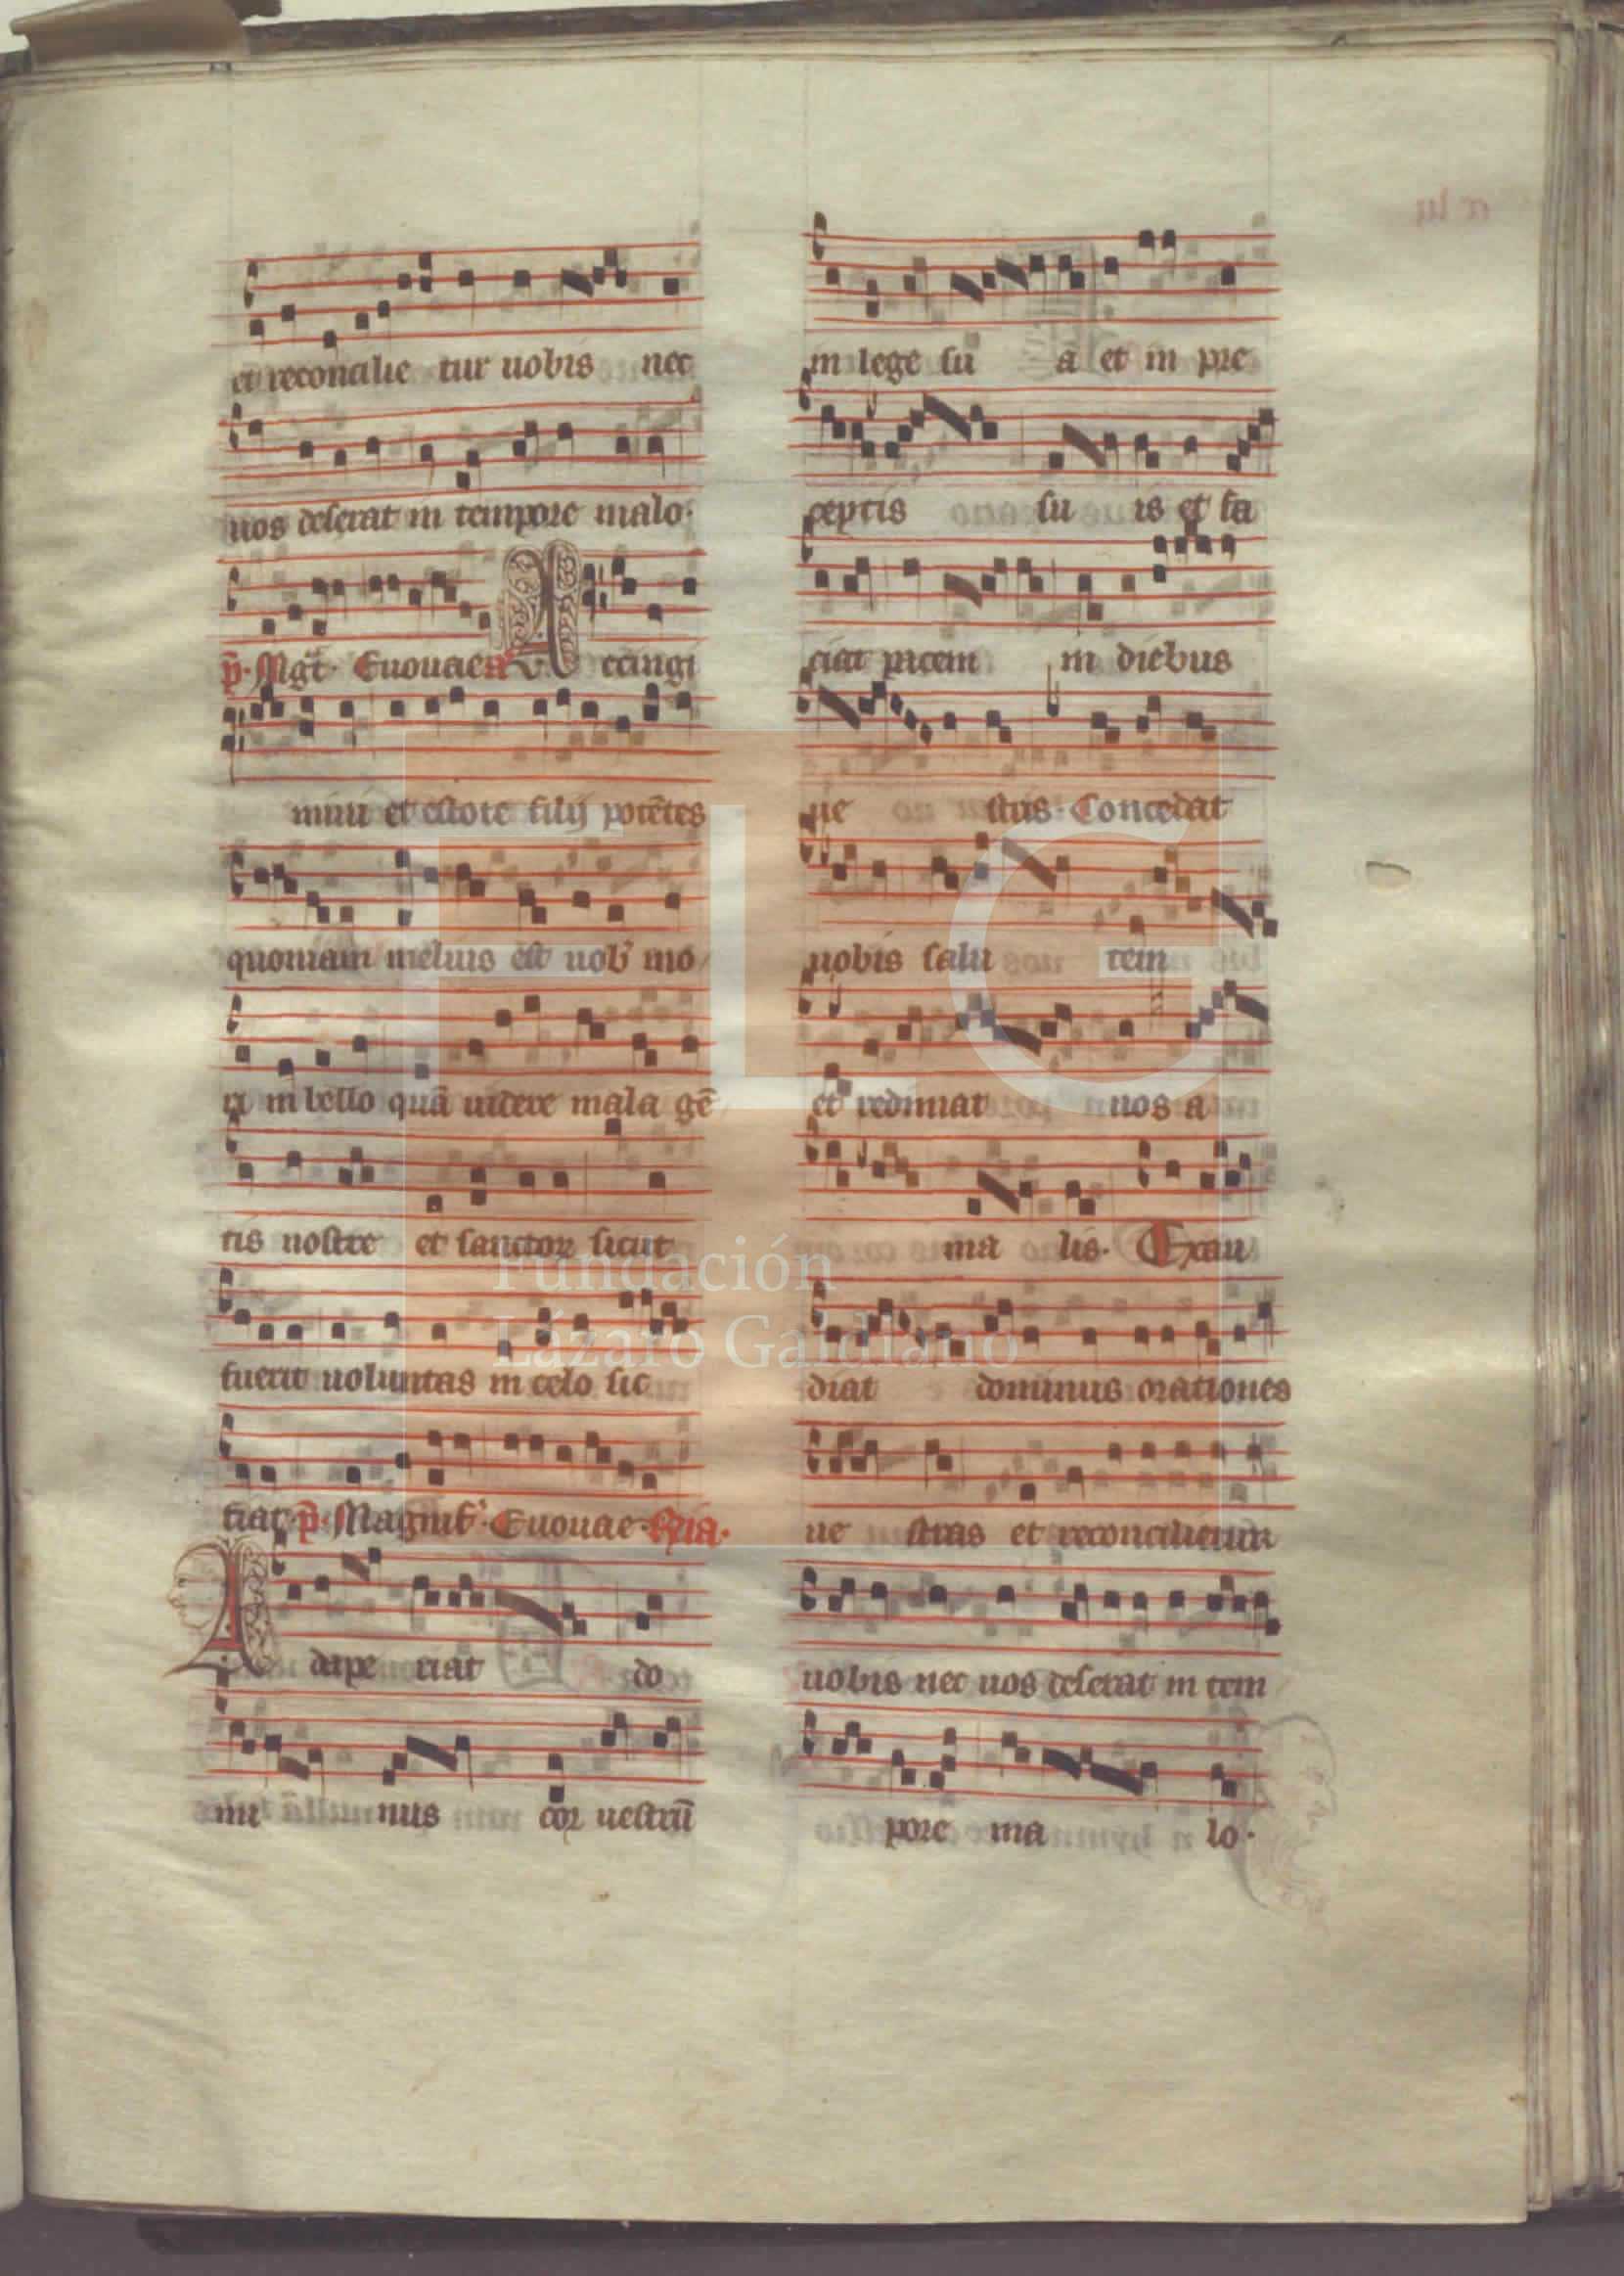 et reconcilie tur uobis nec
uos deserat in tempore malo.
p̄. Mḡt. Euouae a. A ccingi
mini et estote filij potētes
quoniam melius est uob' mo
ri in bello quā uidere mala gē
tis nostre et sanctoꝝ sicut
fuerit uoluntas in celo sic
fiat. p̄. Magnif'. Euouae.
A dape riat do
mi nus cor uestrū
in lege su a et in pre
ceptis su is et fa
ciat pacem in diebus
ue stris. Concedat
uobis salu tem
et redimat uos a
ma lis. Exau
diat dominus orationes
ue stras et reconcilietur
uobis nec uos deserat in tem
pore ma lo.
FLG
Fundación
Lázaro Galdiano